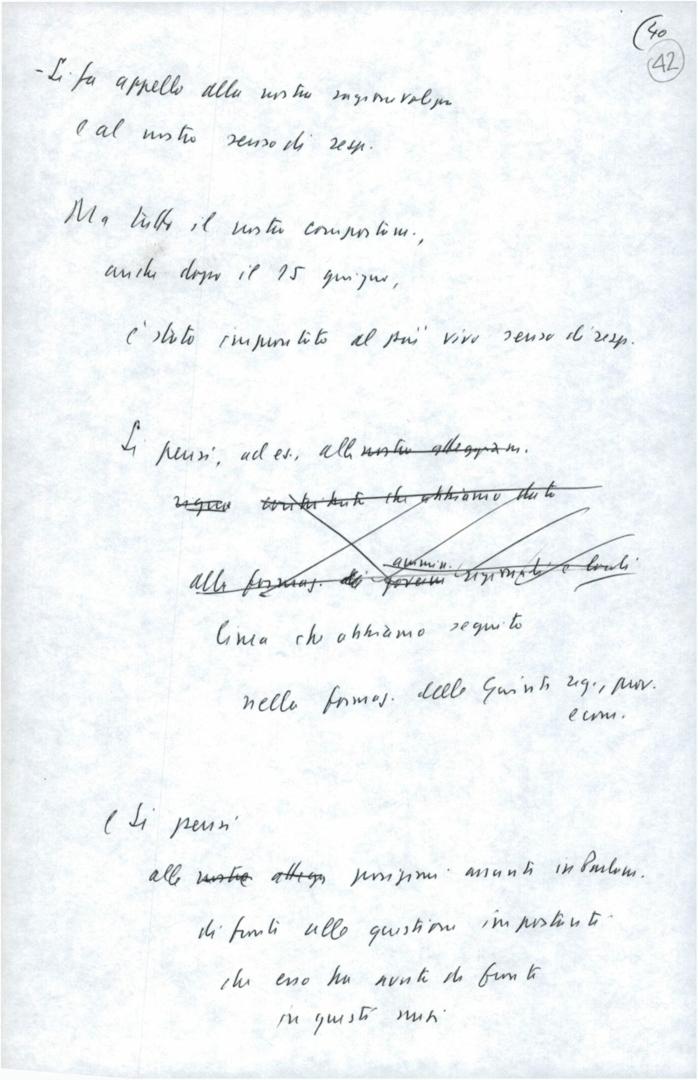 (40
42
- Si fa appello alla nostra ragionevolezza
e al nostro senso di resp.
Ma tutto il nostro comportam.,
anche dopo il 15 giugno,
è stato improntato al più vivo senso di resp.
Si pensi, ad es., alla nostro atteggiam.
contributo che abbiamo dato
alla formaz. di governi ammin. regionali e locali
linea che abbiamo seguito
nella formaz. delle Giunte reg., prov.
e com.
e Si pensi
alle nostre atteg posizioni assunte in Parlam.
di fronte alle questioni importanti
che esso ha avute di fronte
in questi mesi